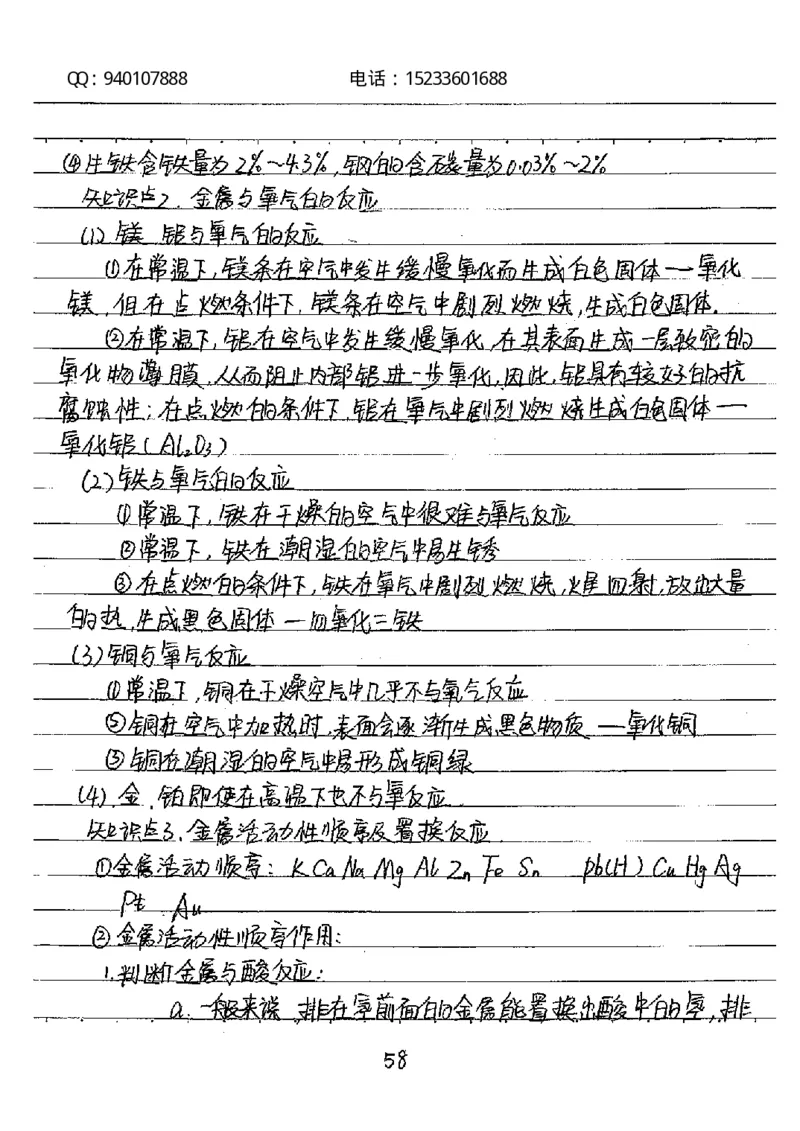 QQ：940107888 电话：15233601688
④生铁含铁量为2%~4.3%，钢的含碳量为0.03%~2%
知识点2．金属与氧气的反应
(1)镁、铝与氧气的反应
①在常温下，镁条在空气中发生缓慢氧化而生成白色固体一一氧化
镁，但在点燃条件下，镁条在空气中剧烈燃烧，生成白色固体．
②在常温下，铝在空气中发生缓慢氧化，在其表面生成一层致密的
氧化物薄膜，从而阻止内部铝进一步氧化，因此，铝具有较好的抗
腐蚀性；在点燃的条件下，铝在氧气中剧烈燃烧生成白色固体一一
氧化铝(Al₂O₃)
(2)铁与氧气的反应
①常温下，铁在干燥的空气中很难与氧气反应
②常温下，铁在潮湿的空气中易生锈
③在点燃的条件下，铁在氧气中剧烈燃烧，火星四射，放出大量
的热，生成黑色固体一四氧化三铁
(3)铜与氧气反应
①常温下，铜在干燥空气中几乎不与氧气反应
②铜在空气中加热时，表面会逐渐生成黑色物质一一氧化铜
③铜在潮湿的空气中易形成铜绿
(4)金、铂即使在高温下也不与氧反应
知识点3．金属活动性顺序及置换反应
①金属活动顺序：K Ca Na Mg Al Zn Fe Sn Pb(H) Cu Hg Ag
Pt Au
②金属活动性顺序作用：
1.判断金属与酸反应：
a. 一般来说，排在氢前面的金属能置换出酸中的氢，排
58